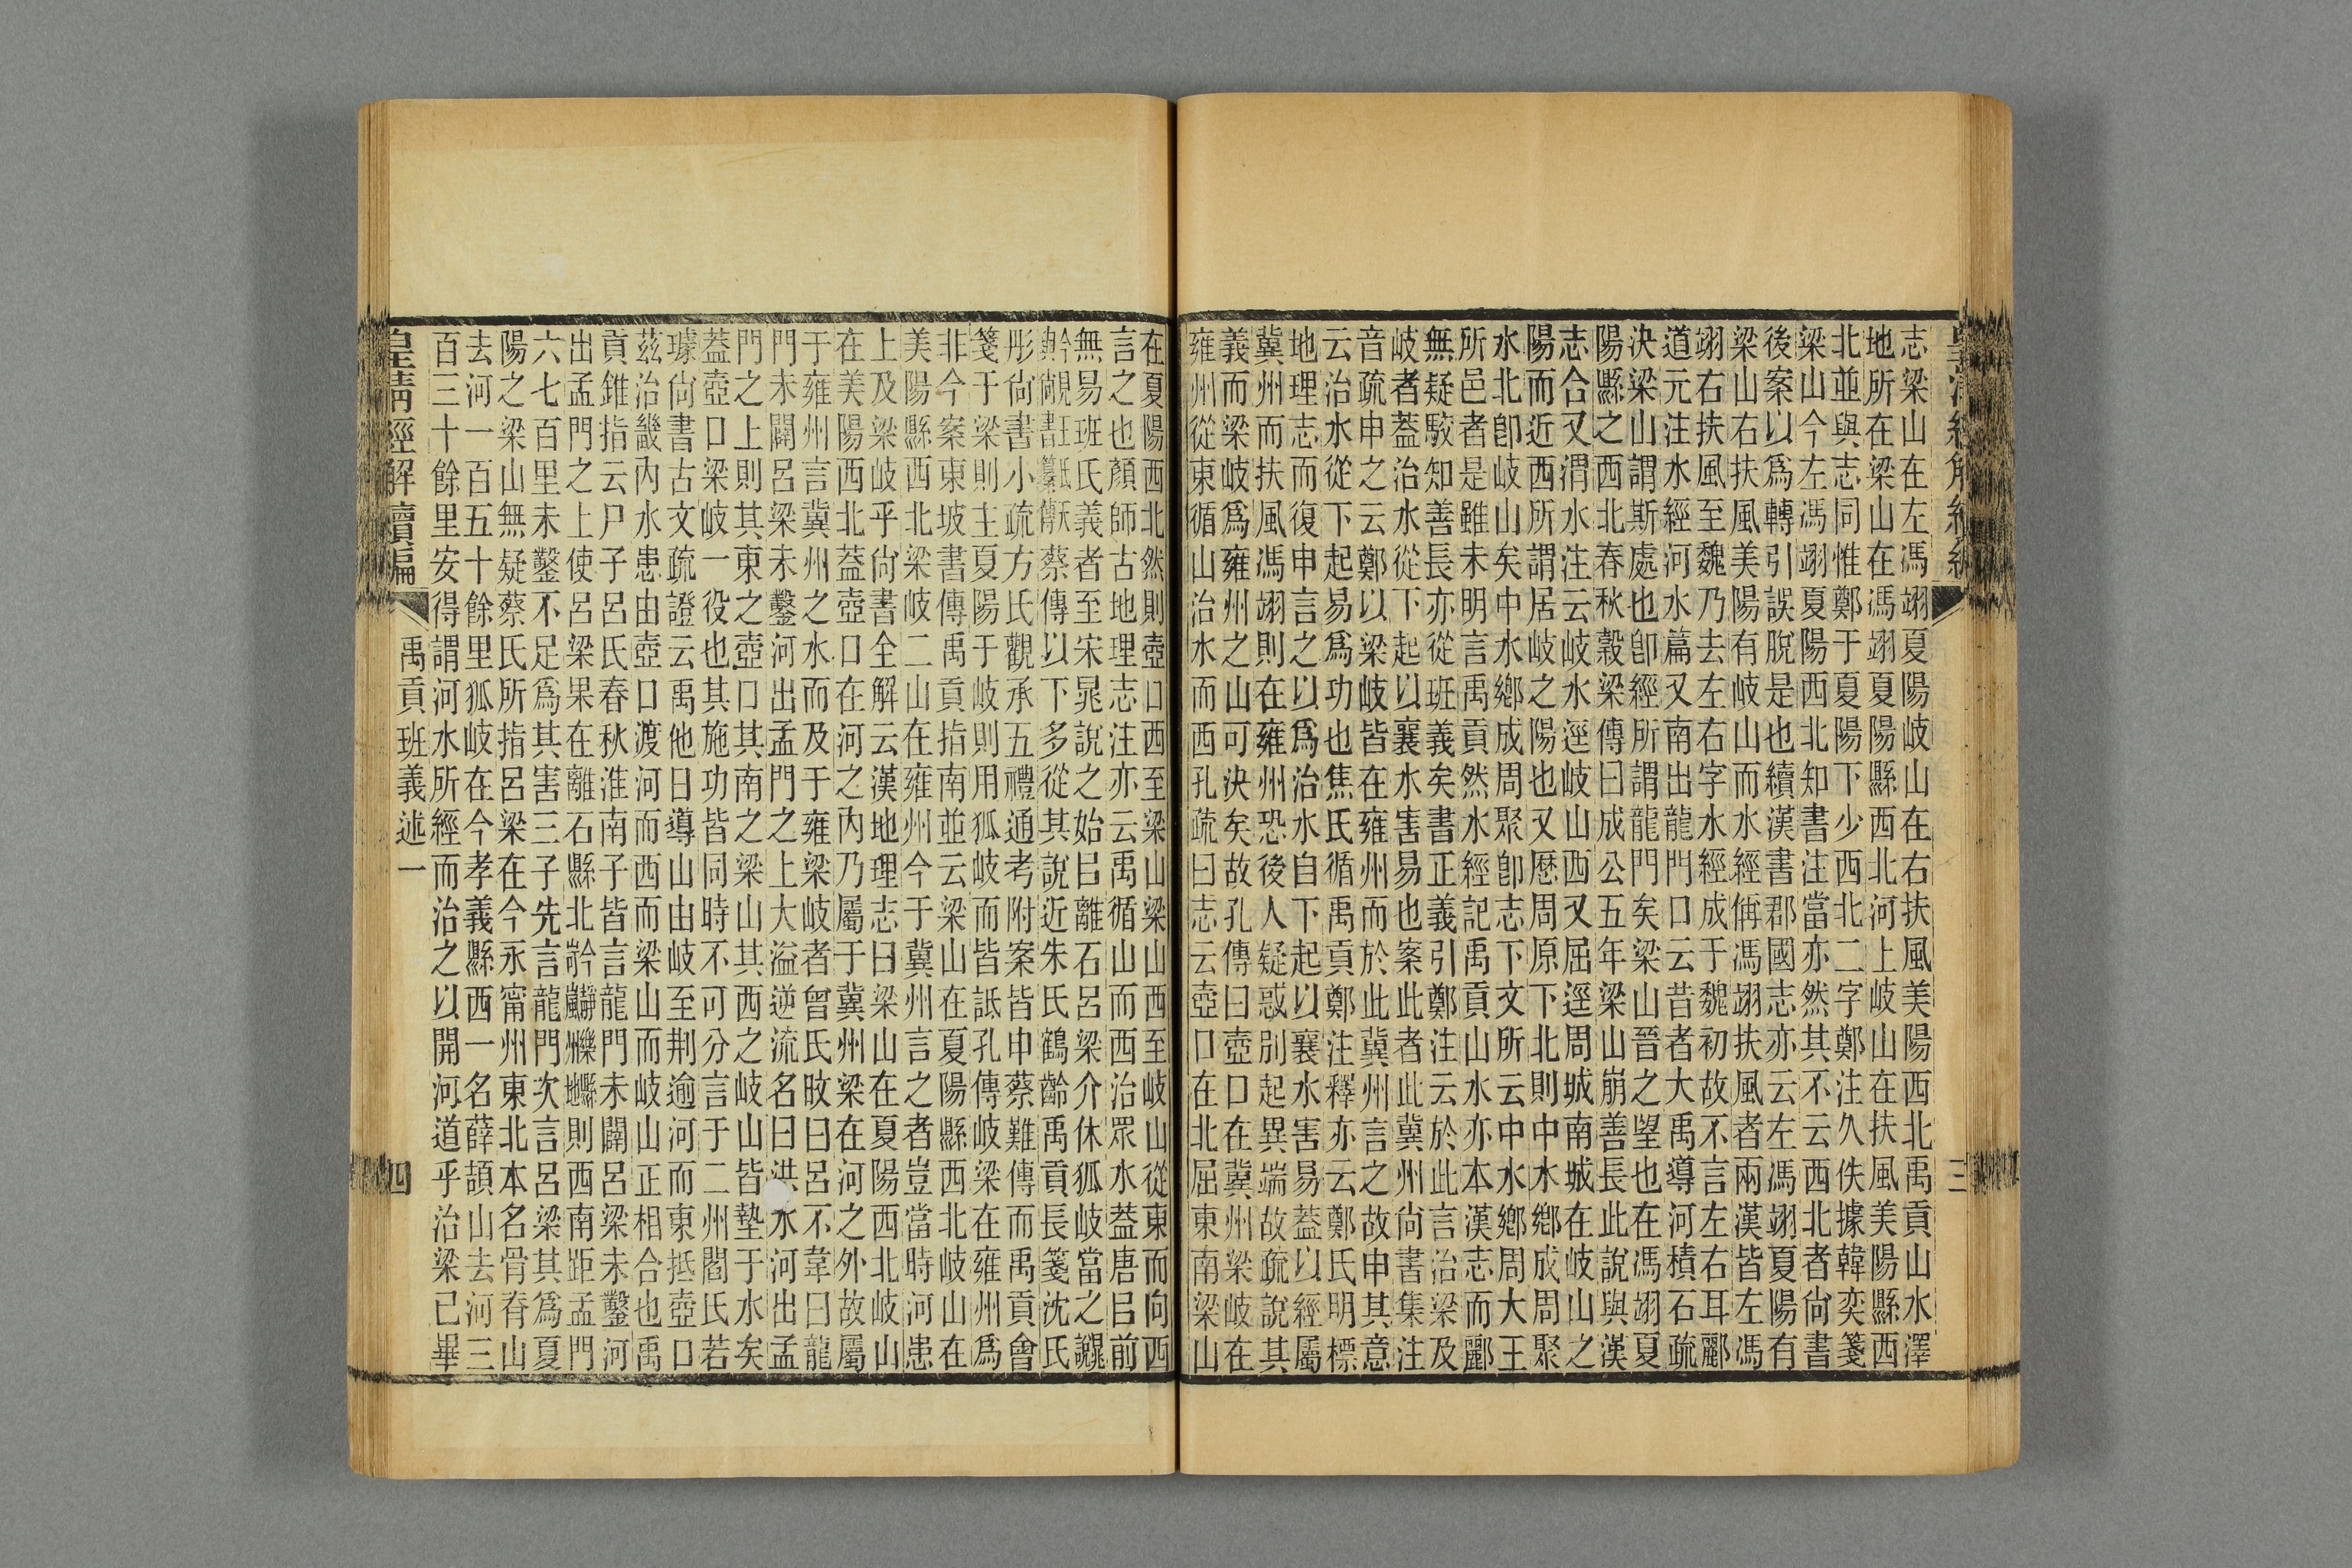 志梁山在左馮翊夏陽岐山在右扶風美陽西北禹貢山水澤
地所在梁山在馮翊夏陽縣西北河上岐山在扶風美陽縣西
北並與志同惟鄭于夏陽下少西北二字鄭注久佚據韓奕箋
梁山今左馮翊夏陽西北知書注當亦然其不云西北者尙書
後案以爲轉引誤脫是也續漢書郡國志亦云左馮翊夏陽有
梁山右扶風美陽有岐山而水經偁馮翊扶風者兩漢皆左馮
翊右扶風至魏乃去左右字水經成于魏初故不言左右耳酈
道元注水經河水篇又南出龍門口云昔者大禹導河積石疏
決梁山謂斯處也卽經所謂龍門矣梁山晉之朢也在馮翊夏
陽縣之西北春秋穀梁傳曰成公五年梁山崩善長此說與漢
志合又渭水注云岐水逕岐山西又屈逕周城南城在岐山之
陽而近西所謂居岐之陽也又歷周原下北則中水鄉成周聚
水北卽岐山矣中水鄉成周聚卽志下文所云中水鄉周大王
所邑者是雖未明言禹貢然水經記禹貢山水亦本漢志而酈
無疑駮知善長亦從班義矣書正義引鄭注云於此言治梁及
岐者蓋治水從下起以襄水害易也案此者此冀州尙書集注
音疏申之云鄭以梁岐皆在雍州而於此冀州言之故申其意
云治水從下起易爲功也焦氏循禹貢鄭注釋亦云鄭氏明標
地理志而復申言之以爲治水自下起以襄水害易蓋以經屬
冀州而扶風馮翊則在雍州恐後人疑惑別起異端故疏說其
義而梁岐爲雍州之山可決矣故孔傳曰壺口在冀州梁岐在
雍州從東循山治水而西孔疏曰志云壺口在北屈東南梁山
在夏陽西北然則壺口西至梁山梁山西至岐山從東而向西
言之也顏師古地理志注亦云禹循山而西治眾水葢唐㠯前
無易班氏義者至宋晁說之始㠯離石呂梁介休狐岐當之
蔡傳以下多從其說近朱氏鶴齡禹貢長箋沈氏
彤尙書小疏方氏觀承五禮通考附案皆申蔡難傳而禹貢會
箋于梁則主夏陽于岐則用狐岐而皆詆孔傳岐梁在雍州爲
非今案東坡書傳禹貢指南並云梁山在夏陽縣西北岐山在
美陽縣西北梁岐二山在雍州今于冀州言之者豈當時河患
上及梁岐乎尙書全解云漢地理志曰梁山在夏陽西北岐山
在美陽西北蓋壺口在河之內乃屬于冀州梁在河之外故屬
于雍州言冀州之水而及于雍梁岐者曾氏旼曰呂不韋曰龍
門未闢呂梁未鑿河出孟門之上大溢逆流名曰洪水河出孟
門之上則其東之壺口其南之梁山其西之岐山皆墊于水矣
蓋壺口梁岐一役也其施功皆同時不可分言于二州閻氏若
璩尙書古文疏證云禹他日導山由岐至荆逾河而東抵壺口
茲治畿內水患由壺口渡河而西而梁山而岐山正相合也禹
貢錐指云尸子呂氏春秋淮南子皆言龍門未闢呂梁未鑿河
出孟門之上使呂梁果在離石縣北則西南距孟門
六七百里未鑿不足爲其害三子先言龍門次言呂梁其爲夏
陽之梁山無疑蔡氏所指呂梁在今永甯州東北本名骨脊山
去河一百五十餘里狐岐在今孝義縣西一名薛頡山去河三
百三十餘里安得謂河水所經而治之以開河道乎治梁已畢
皇淸經解續編
禹貢班義述一
三
四